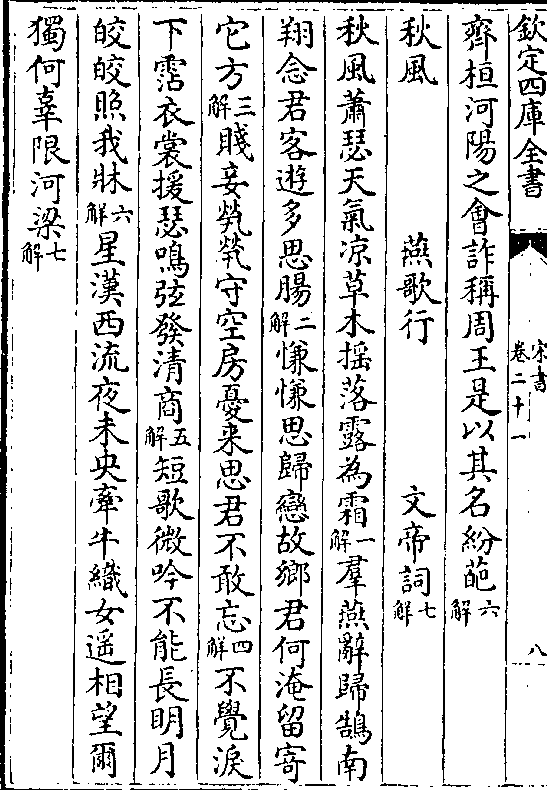 欽定四庫全書
宋書
卷二十一
八
齊桓河陽之會詐稱周王是以其名紛葩六解
秋風 燕歌行 文帝詞七解
秋風蕭瑟天氣凉草木摇落露為霜一解羣燕辭歸鵠南
翔念君客遊多思腸二解慊慊思歸戀故鄉君何淹留寄
它方三解賤妾煢煢守空房憂来思君不敢忘四解不覺淚
下霑衣裳援瑟鳴弦發清商五解短歌微吟不能長明月
皎皎照我牀六解星漢西流夜未央牽牛織女遥相望爾
獨何辜限河梁七解